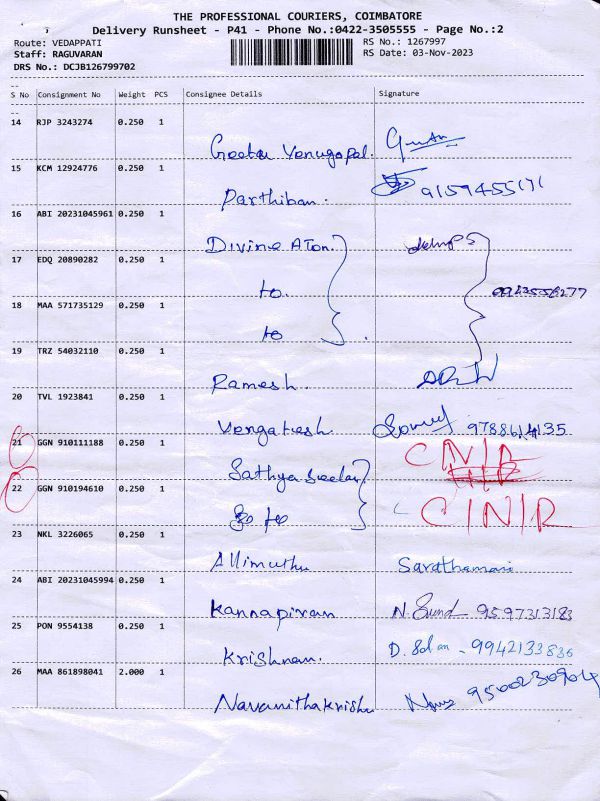 THE PROFESSIONAL COURIERS, COIMBATORE
Delivery Runsheet - P41 - Phone No.:0422-3505555 - Page No.:2
Route: VEDAPPATI RS No.: 1267997
Staff: RAGUVARAN RS Date: 03-Nov-2023
DRS No.: DCJB126799702
S No Consignment No Weight PCS Consignee Details Signature
14 RJP 3243274 0.250 1
Geetha Venugopal.
15 KCM 12924776 0.250 1
Parthiban. 9159455171
16 ABI 20231045961 0.250 1
Divine A Ton.
17 EDQ 20890282 0.250 1
to. 9943556277
18 MAA 571735129 0.250 1
to
19 TRZ 54032110 0.250 1
Ramesh.
20 TVL 1923841 0.250 1
Vengatesh. 9788614135
21 GGN 910111188 0.250 1 C/N/R
Sathya Seelan
22 GGN 910194610 0.250 1
to C/N/R
23 NKL 3226065 0.250 1
Allimuthu Sarathamani
24 ABI 20231045994 0.250 1
Kannapiran N. Sund 9597313183
25 PON 9554138 0.250 1
Krishnan. D. - 9942133836
26 MAA 861898041 2.000 1
Navanithakrishn 9500230904